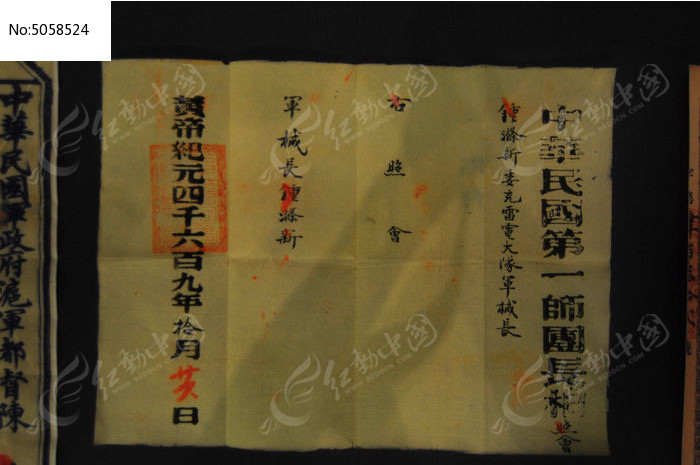 No:5058524
中華民國第一師團長 照會
鍾滌新委充雷電大隊軍械長
右照會
軍械長鍾滌新
黃帝紀元四千六百九年拾月廿六日
中華民國軍政府滬軍都督陳
红动中国
WWW.REDOCN.COM